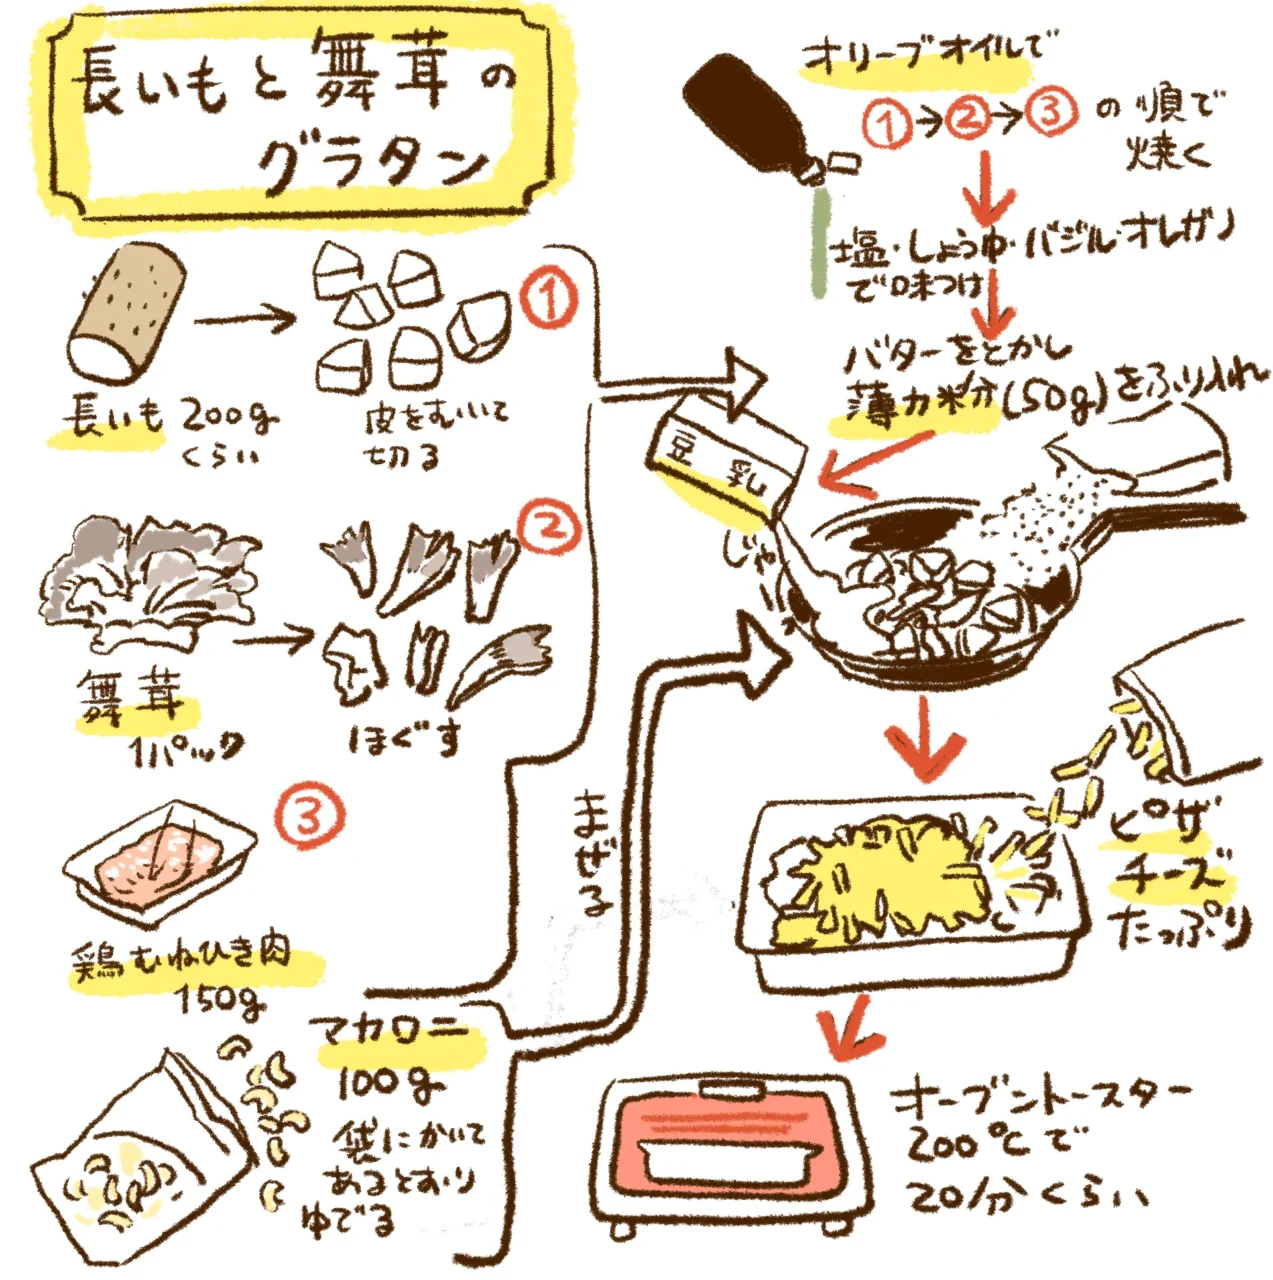 長いもと舞茸の
グラタン
長いも 200g
くらい
皮をむいて
切る
①
舞茸
1パック
ほぐす
②
③
鶏むねひき肉
150g
マカロニ
100g
袋にかいて
あるとおり
ゆでる
まぜる
オリーブオイルで
①→②→③の順で
焼く
塩・しょうゆ・バジル・オレガノ
で味つけ
バターをとかし
薄力粉(50g)をふり入れ
豆乳
ピザ
チーズ
たっぷり
オーブントースター
200℃で
20分くらい